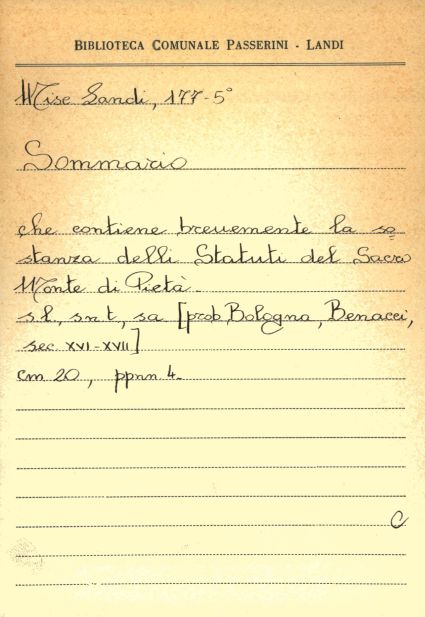 BIBLIOTECA COMUNALE PASSERINI - LANDI
Misc Landi, 177-5°
Sommario
che contiene breuemente la so=
stanza delli Statuti del Sacro
Monte di Pietà.
s.l., s.n.t., s.a. [prob. Bologna, Benacci,
sec. XVI-XVII]
cm 20, pp.nn. 4.
C